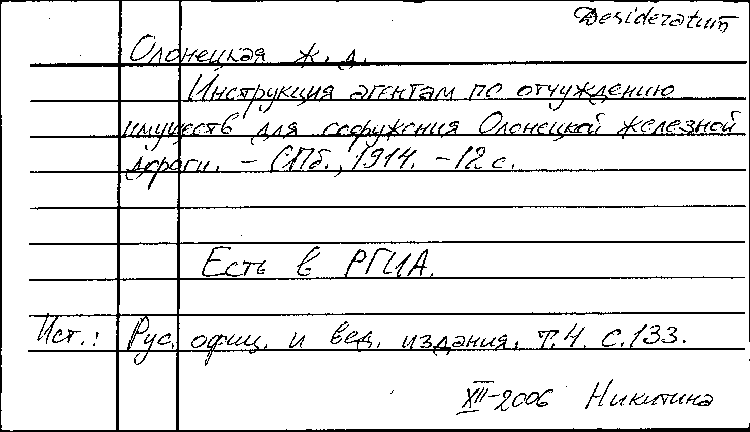 Desideratum
Олонецкая ж. д.
Инструкция агентам по отчуждению
имуществ для сооружения Олонецкой железной
дороги. – СПб., 1914. – 12 с.
Есть в РГИА.
Ист.: Рус. офиц. и вед. издания. т.4. с.133.
XII-2006 Никитина